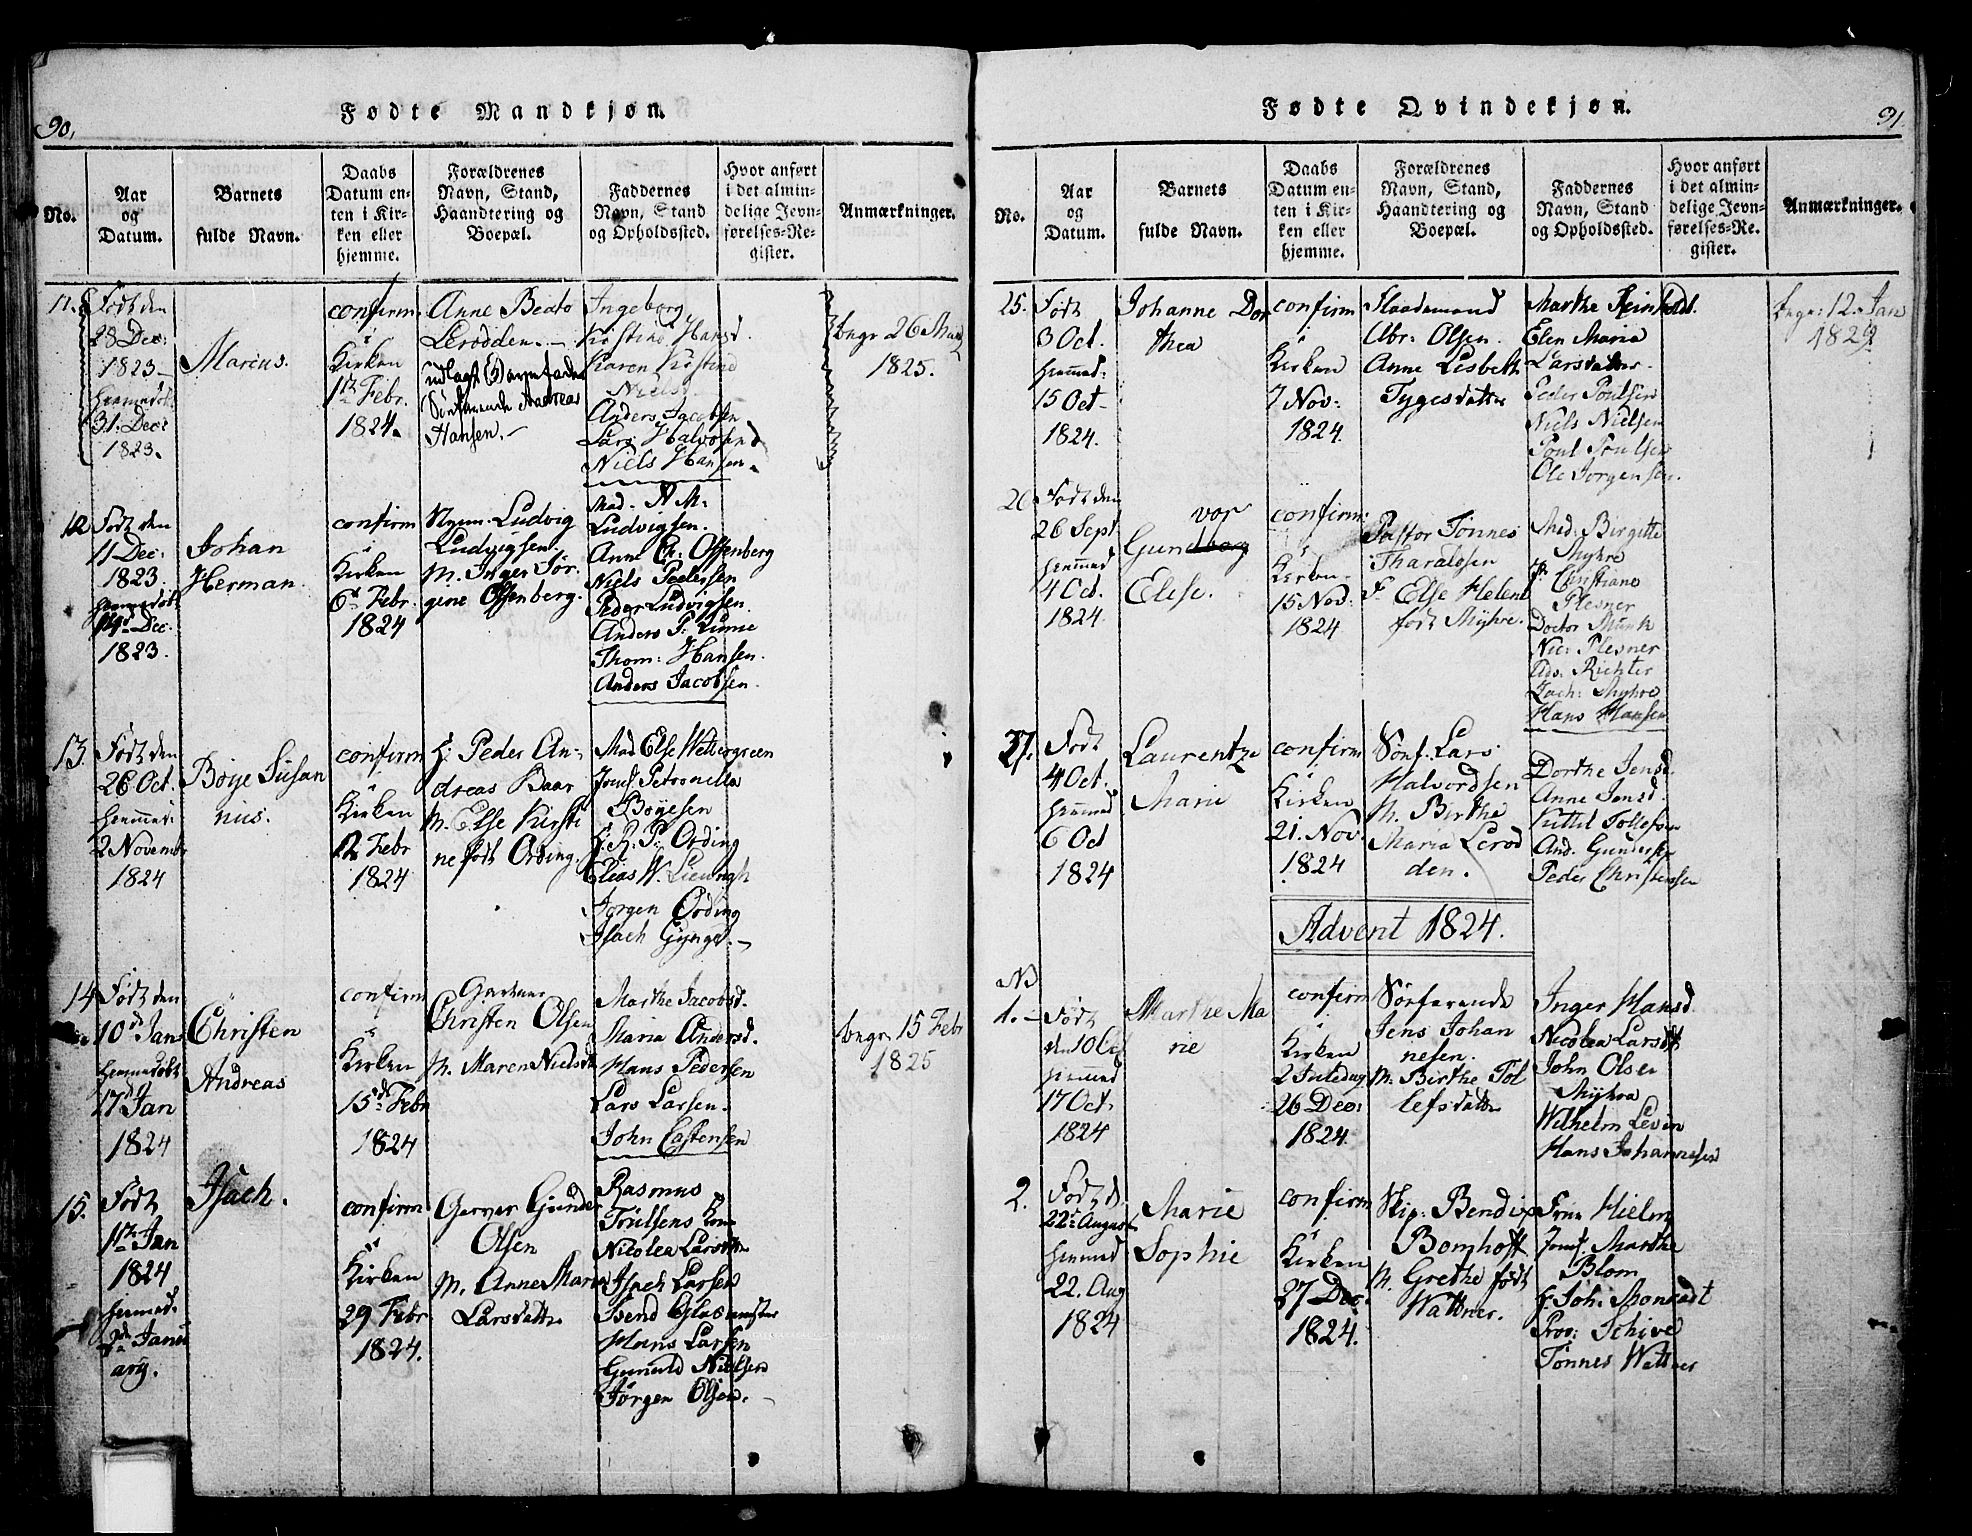 90,
Fødte Mandkjøn.
No.
Aar
og
Datum.
Barnets
fulde Navn.
Daabs
Datum en-
ten i Kir-
ken eller
hjemme.
Forældrenes
Navn, Stand,
Haandtering og
Boepæl.
Faddernes
Navn, Stand
og Opholdssted.
Hvor anført
i det almin-
delige Jevn-
førelses-Re-
gister.
Anmærkninger.
11.
Født den
28 Dec:
1823
hiemmedøbt
31. Dec:
1823.
Marius.
confirm
i
Kirken
1ste Febr.
1824.
Anne Beate
Lerodden.
udlagt
Søefarende Andreas
Hansen.
Ingeborg
Kirstine Hansd.
Karen Kirstine
Niels
Anders Jacobsen
Lars Halvorsen
Niels Hansen.
begr 26 Mai
1825.
12
Født den
11 Dec:
1823.
hiemmedøbt
14de Dec:
1823.
Johan
Herman.
confirm
i
Kirken
6te Febr.
1824
Ludvig
Ludvigsen.
M. Inger Jør-
gine Offenberg.
Mad. A M.
Ludvigsen.
Anne E: Offenberg
Niels Pedersen
Peder Ludvigsen.
Anders P. Lunne
Thom: Hansen.
Anders Jacobsen.
13.
Født den
26 Oct.
hiemmed:
2 Novembr
1824
Bøye Susan
nius.
confirm
i
Kirken
12 Febr
1824
H: Peder An-
dreas Baar
M. Else Kirsti
ne født Ording.
Mad Else Wettergreen
Jomf Petronella
Bøyesen
H. R. P. Ording
Elias W. Lieungh
Jørgen Ording
Isach Gjynge.
14
Født den
10de Jan
hiemmedøbt
17 Jan
1824
Christen
Andreas
confirm
i
Kirken
15de Febr
1824
Christen Olsen
M. Maren Nielsd
Marthe Jacobsd.
Maria Andersd.
Hans Pedersen
Lars Larsen.
John Castensen
begr 15 Febr
1825
15.
Født
1ste Jan
1824
hiemmed.
Janu
ary.
Isach.
confirm
i
Kirken
29 Febr
1824.
Garver Gunder
Olsen
M. Anne Maria
Larsdatter
Rasmus
Truelsens Kone
Nicolea Larsdatter
Isach Larsen
Bend Glasmester
Hans Larsen
Gunuld Nielsen
Jørgen Olsen.
91
Fødte Qvindekjøn.
No.
Aar
og
Datum.
Barnets
fulde Navn.
Daabs
Datum en-
ten i Kir-
ken eller
hjemme.
Forældrenes
Navn, Stand,
Haandtering og
Boepæl.
Faddernes
Navn, Stand
og Opholdssted.
Hvor anført
i det almin-
delige Jevn-
førelses-Re-
gister.
Anmærkninger.
25.
Født
3 Oct.
hiemmed:
15 Oct
1824.
Johanne Dor
thea
confirm
i
Kirken
7 Nov:
1824.
Abr: Olsen.
Anne Lisbeth
Tygesdatter
Marthe Reinholdt.
Elen Maria
Larsdatter.
Peder Poulsen
Niels Nielsen
Poul Poulsen
Ole Jørgensen.
begr: 12. Jan
1829.
26
Født den
26 Sept
hiemmed
4 Oct.
1824.
vor
Gundborg
Elise.
confirm
i
Kirken.
15 Nov:
1824
Pastor Tønnes
Tharaldsen
F. Else Helene
født Myhre.
Mad: Birgitte
Myhre
Christiane
Plesner
Doctor Munk
Nic: Plesner
Ads. Richter
Zach: Myhre
Hans Hansen
27.
Født
4 Oct.
hiemmed
6 Oct
1824
Laurentze
Marie
confirm
i
Kirken
21. Nov.
1824
Sønf. Lars
Halvordsen
M. Birthe
Maria Lerod
den.
Dorthe Jensd.
Anne Jensd.
Kittil Tollefsen
And. Gundersen
Peder Christensen
Advent 1824.
NB
1.
Født
den 10 Oct
hiemmed
17 Oct.
1824
Marthe Ma
rie
confirm
i
Kirken
2 Juledag
26 Dec:
1824.
Sørfarende
Jens Johan
nesen.
M. Birthe Tol
lefsdatter
Inger Hansd.
Nicolea Larsdtr
John Olsen
Myhra
Wilhelm Levin
Hans Johannesen
2.
Født d.
22de August
hiemmed
22. Aug
1824
Marie
Sophie
confirm
i
Kirken
27 Dec.
1824.
Skip: Bendix
Bomhoff
M. Grethe født
Wattner.
Frue Hielm
Jomf. Marthe
Blom
H. Joh: Monradt
Prov: Schive
Tønnes Wattner